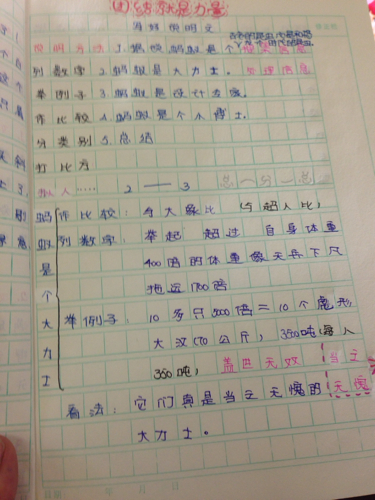 (4)团结就是力量
写好说明文
说明方法 1.蚂蚁是个
列数字 2.蚂蚁是大力士。处理信息
举例子 3.蚂蚁是设计专家。
作比较 4.蚂蚁是个小博士。
分类别 5.总结
打比方
拟人…… 2——3 总一分一总
蚂蚁是个大力士
作比较：与大象比 (与超人比)
列数字：举起 超过 自身体重
400倍的体重
拖运1700倍
举例子：10多只 5000倍=10个
大汉(70公斤，3500吨(每人
350吨，盖世无双 当之
看法：它们真是当之无愧的 无愧
大力士。